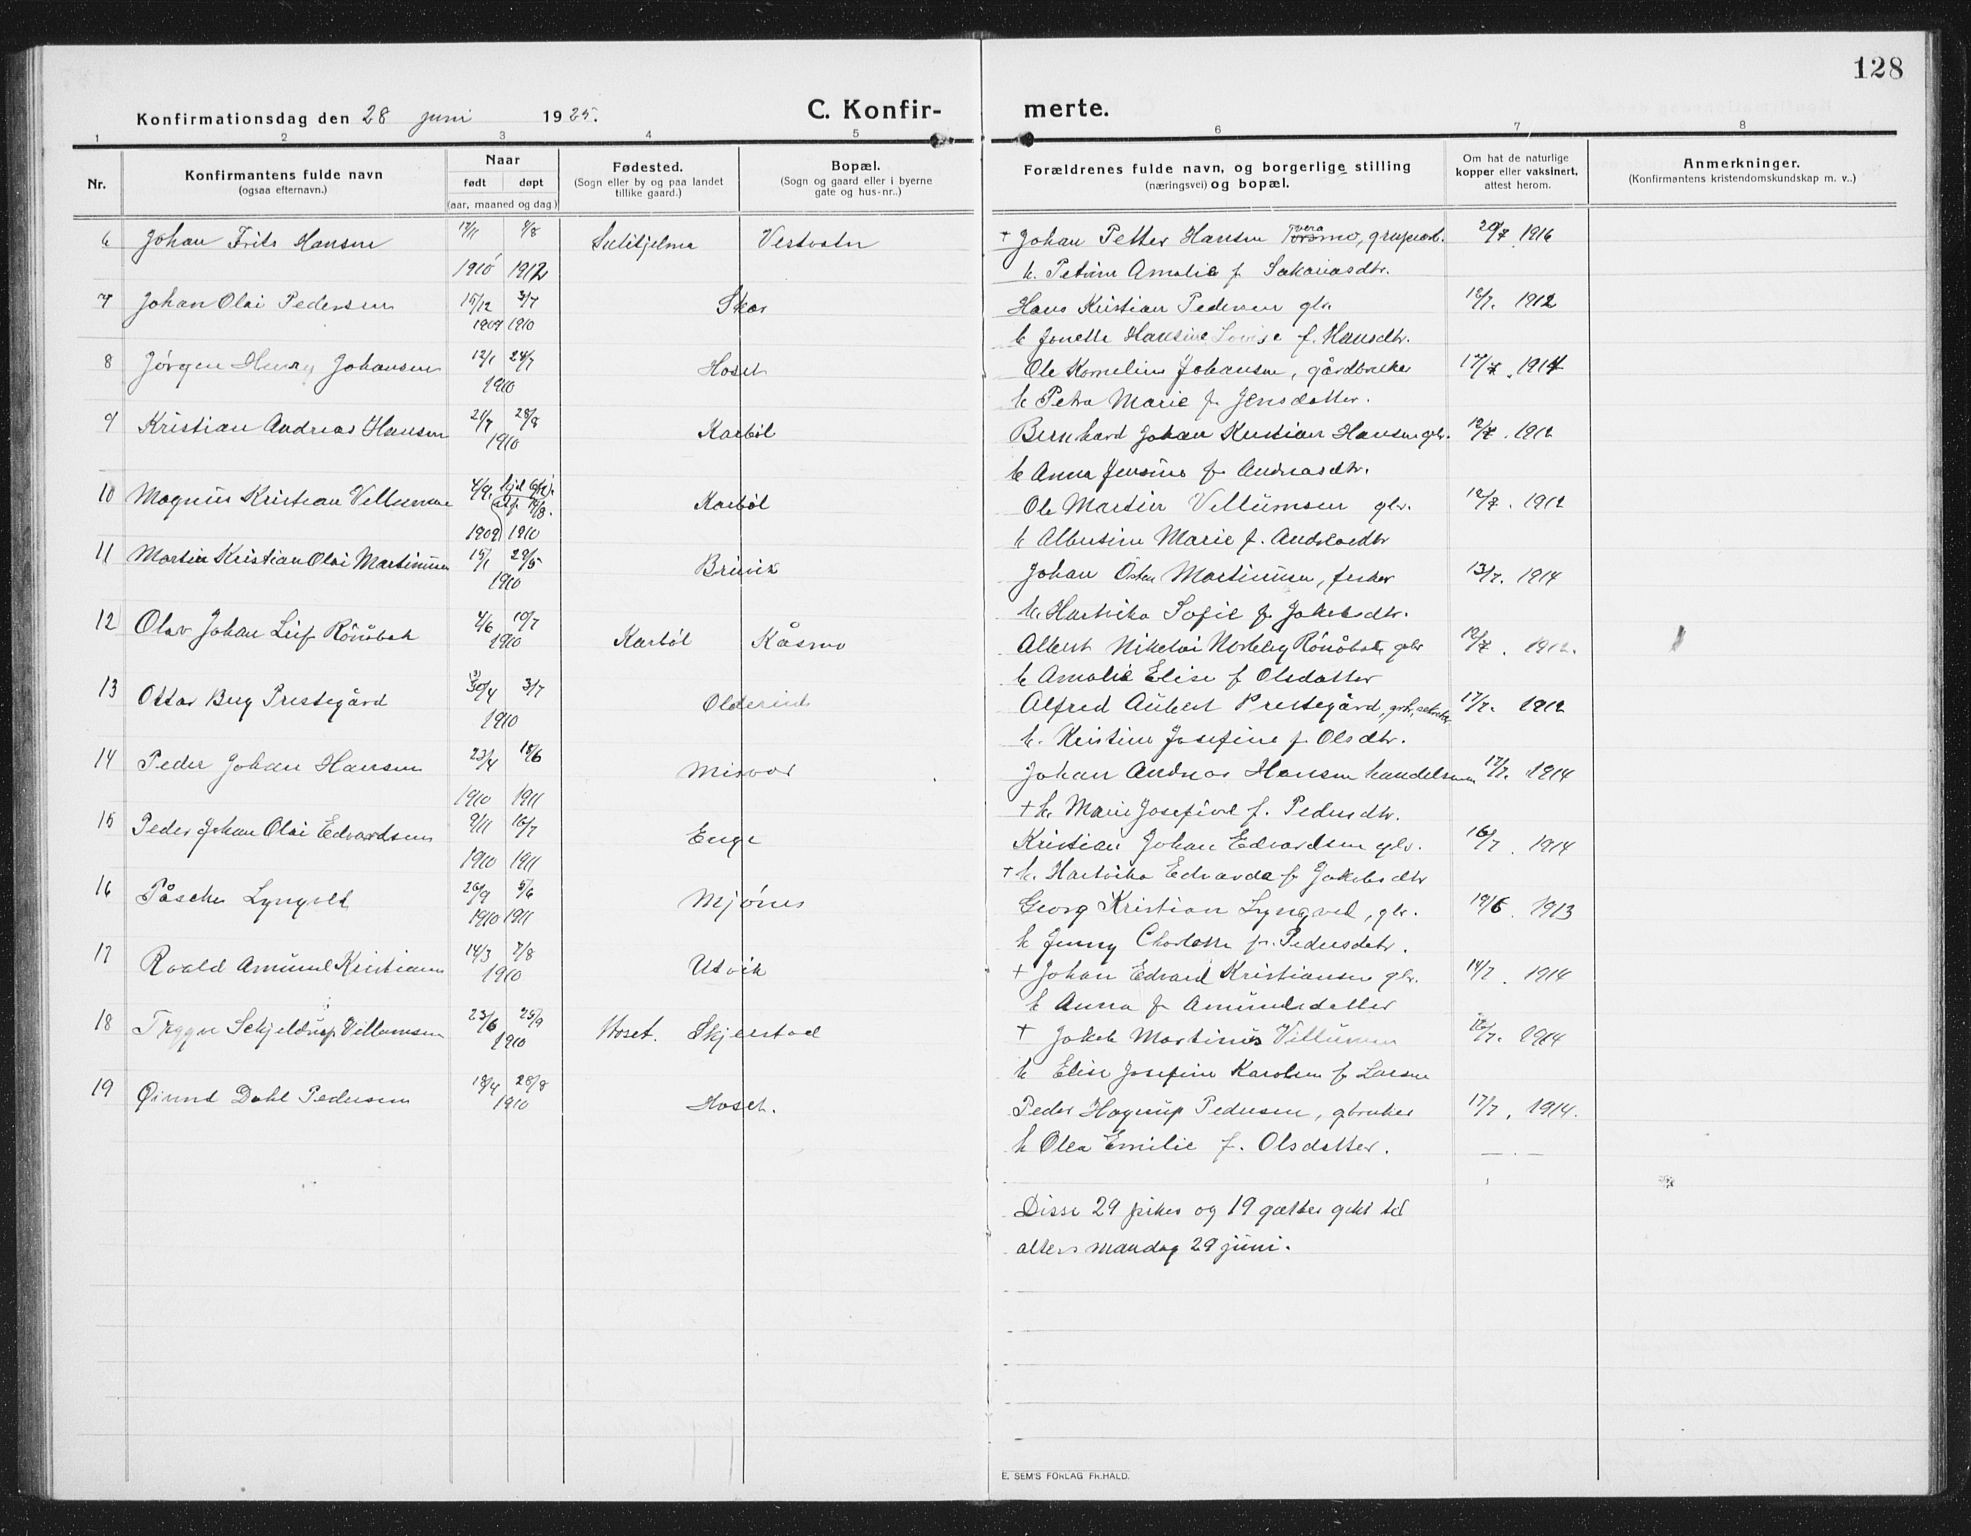 128
Konfirmationsdag den 28 juni 1925. C. Konfirmerte.
1 2 3 4 5 6 7 8
Nr.
Konfirmantens fulde navn
(ogsaa efternavn.)
Naar
født døpt
(aar, maaned og dag)
Fødested.
(Sogn eller by og paa landet
tillike gaard.)
Bopæl.
(Sogn og gaard eller i byerne
gate og hus-nr.)
Forældrenes fulde navn, og borgerlige stilling
(næringsvei) og bopæl.
Om hat de naturlige
kopper eller vaksinert,
attest herom.
Anmerkninger.
(Konfirmantens kristendomskundskap m. v.)
6 Johan Frits Hansen 17/11 4/8 Sulitjelma Vestvatn + Johan Petter Hansen 20/7 1916
1910 1912 h. Petrine Amalie f. Sakariasdtr.
7 Johan Olai Pedersen 15/12 3/7 Skar Hans Kristian Pedersen gbr 18/7. 1912
1909 1910 h Jonette Hansine Lovise f. Hansdtr.
8 Jørgen Henry Johansen 12/1 24/7 Hoset Ole Kornelius Johansen, gårdbruker 17/7. 1914
1910 h Petra Marie f. Jensdatter.
9 Kristian Andreas Hansen 21/7 28/8 Karbøl Bernhard Johan Kristian Hansen gbr. 12/7. 1912
1910 h Anna Jensine f. Andreasdtr.
10 Magnus Kristian Villumsen 4/9 Karbøl Ole Martin Villumsen gbr. 12/7. 1912
1909 1910 h Albertine Marie f. Andreasdtr
11 Martin Kristian Olai Martinusen 15/1 29/5 Brinvik Johan Martinusen, fisker 13/7. 1914
1910 h. Hartvika Sofie f. Jakobsdtr.
12 Olav Johan Leif Rönåbak 4/6 10/7 Karbøl Kåsmo Albert Nikolai Norleby Rönåbak, gbr 12/7. 1912.
1910 h Amalie Elise f Olsdatter
13 Ottar Berg Prestegård 30/4 3/7 Oldereid Alfred Aubert Prestegård, gbr, 17/7. 1912
1910 h. Kristine Josefine f. Olsdtr.
14 Peder Johan Hansen 23/4 18/6 Misvær Johan Andreas Hansen handelsmann 17/7. 1914
1910 1911 + h. Marie Josefine f. Pedersdtr.
15 Peder Johan Olai Edvardsen 9/11 16/7 Enge Kristian Johan Edvardsen gbr. 16/7. 1914
1910 1911 + h. Hartvika Edvarda f Jakobsdtr
16 Påsche Lyngved 26/9 5/6 Mjönes Georg Kristian Lyngved, gbr. 19/6. 1913
1910 1911 h Jenny Charlotte f. Pedersdatr.
17 Roald Amund Kristiansen 14/3 7/8 Utvik + Johan Edvard Kristiansen gbr. 14/7. 1914
1910 h Anna f. Amundsdatter
18 Trygve Schjeldrup Villumsen 23/6 25/9 Hoset. Skjerstad + Jakob Martinus Villumsen 16/7. 1914
1910 h Elise Josefine Karoline f. Larsen
19 Øivind Dahl Pedersen 18/4 28/8 Hoset. Peder Hagerup Pedersen, gbruker 17/7, 1914.
1910 h Olea Emilie f. Olsdatter.
Disse 29 piker og 19 gutter gikk til
alters mandag 29 juni.
E. SEM'S FORLAG FR.HALD.